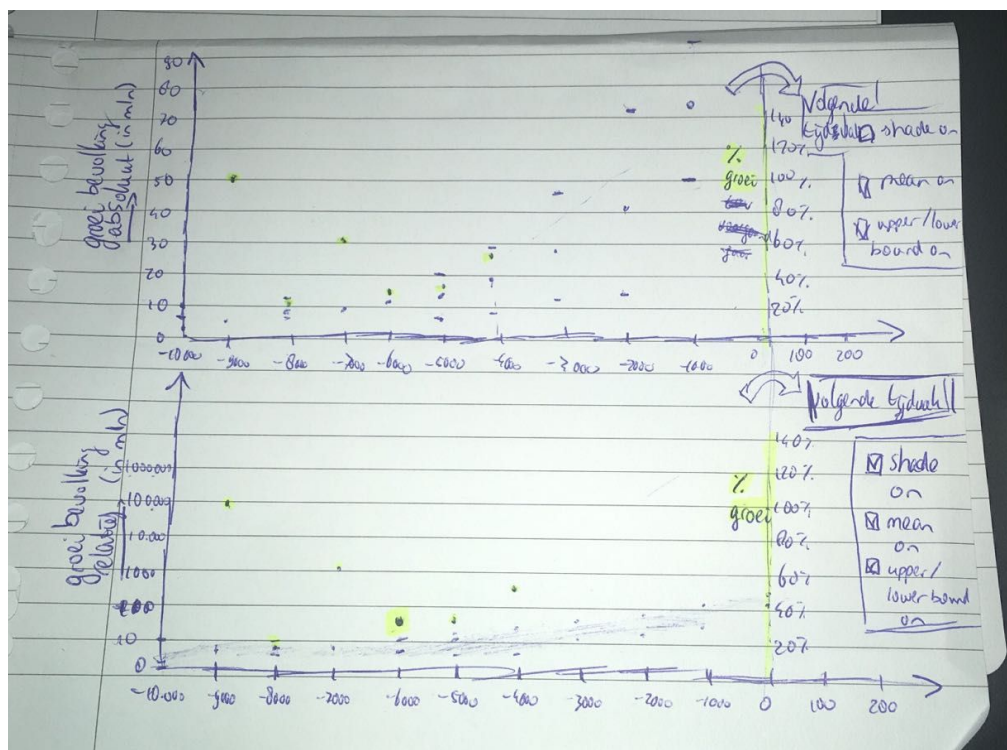 80
60
70
50
40
30
20
10
0
groei bevolking
absoluut (in mln)
-10000
-9000
-8000
-7000
-6000
-5000
-4000
-3000
-2000
-1000
0
100
200
%
groei
140
120%
100%
80%
60%
40%
20%
Volgende!
tijdvak
shade on
mean on
upper/lower
bound on
groei bevolking
relatief (in mln)
100000
10000
1000
10
0
-10.000
-9000
-8000
-7000
-6000
-5000
-4000
-3000
-2000
-1000
0
100
200
%
groei
140%
120%
100%
80%
60%
40%
20%
Volgende tijdvak!!
shade
on
mean
on
upper/
lower bound
on